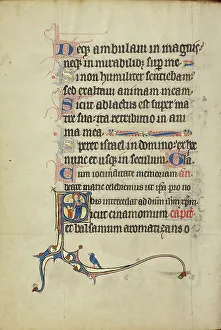 Neq; ambulaui in magnis
neq; in mirabilib; sup me
Si non humiliter sentiebam
sed exaltaui animam meam
Sicut ablactatus est super ma
tre sua ita retributio in ani
ma mea
Speret israel in domino ex hoc
nunc et usq; in seculum Gla
Cum iocunditate memoriam
beate marie celebremus ut ipsa pro no
bis intercedat ad dium ihm xpistum
Sicut cinamomum capit
et balsamum aromatizans o